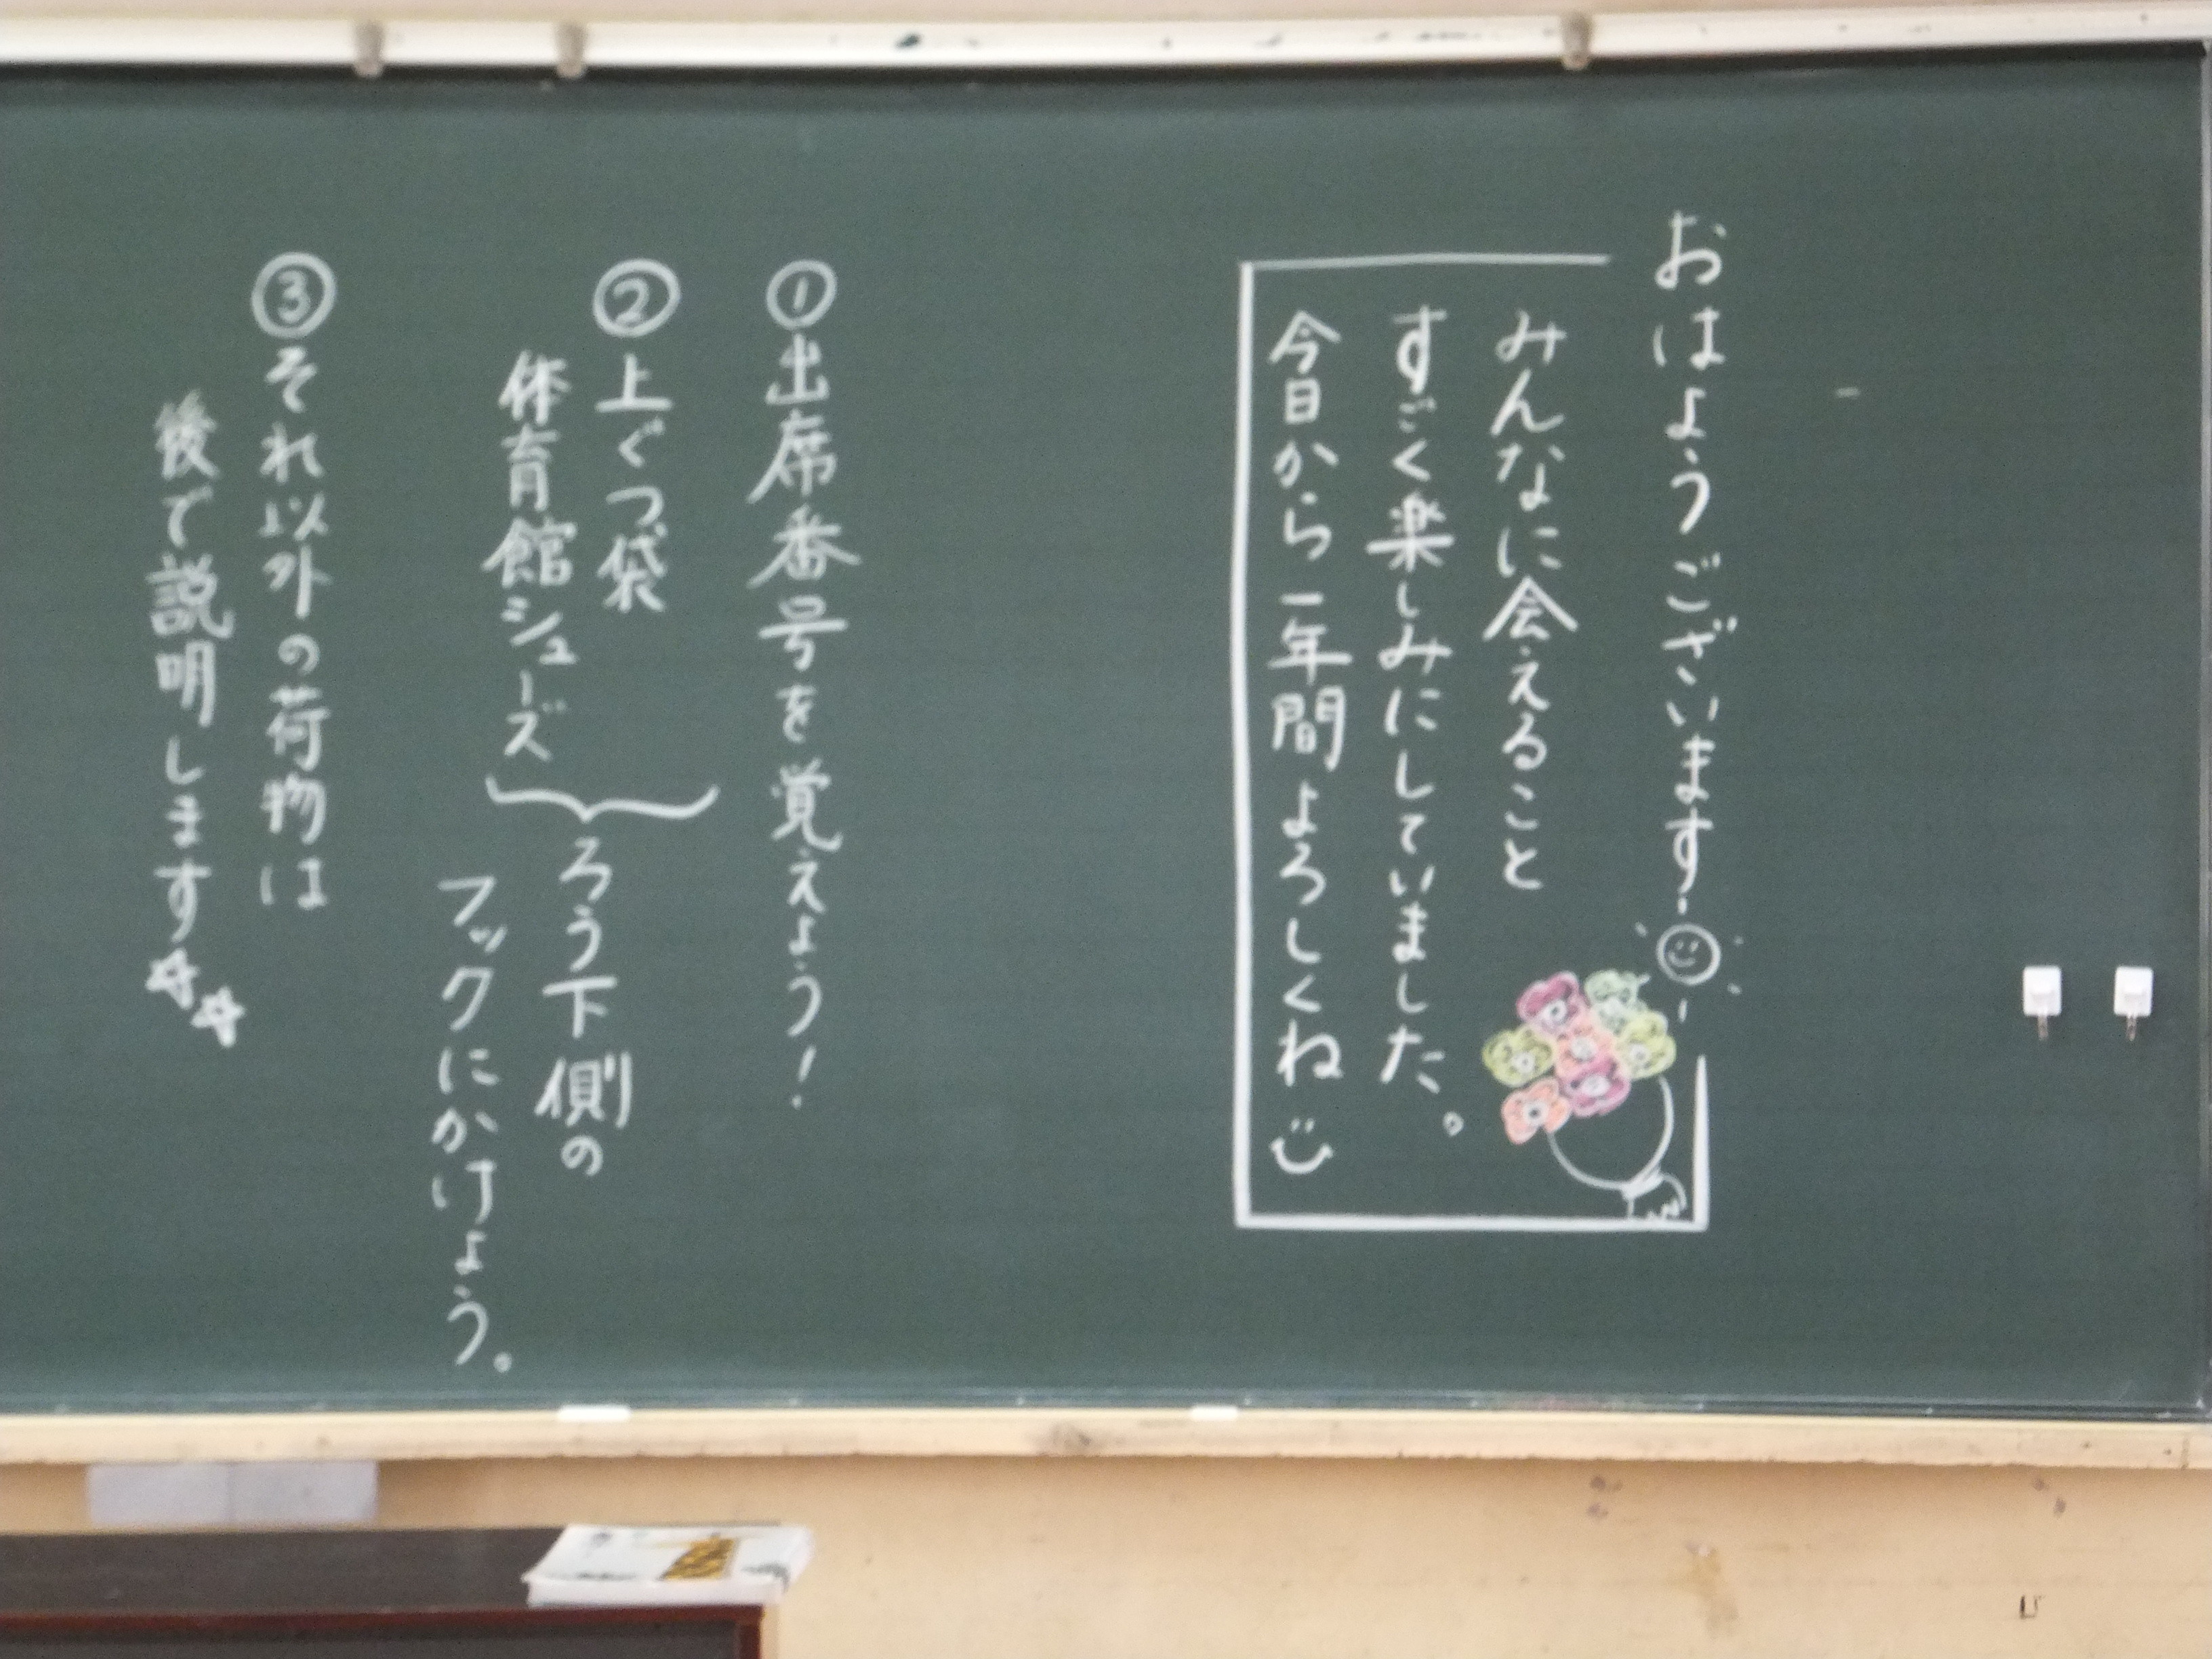 おはようございます
みんなに会えること
すごく楽しみにしていました。
今日から一年間よろしくね
①出席番号を覚えよう！
②上ぐつ袋
体育館シューズ
ろう下側の
フックにかけよう。
③それ以外の荷物は
後で説明します